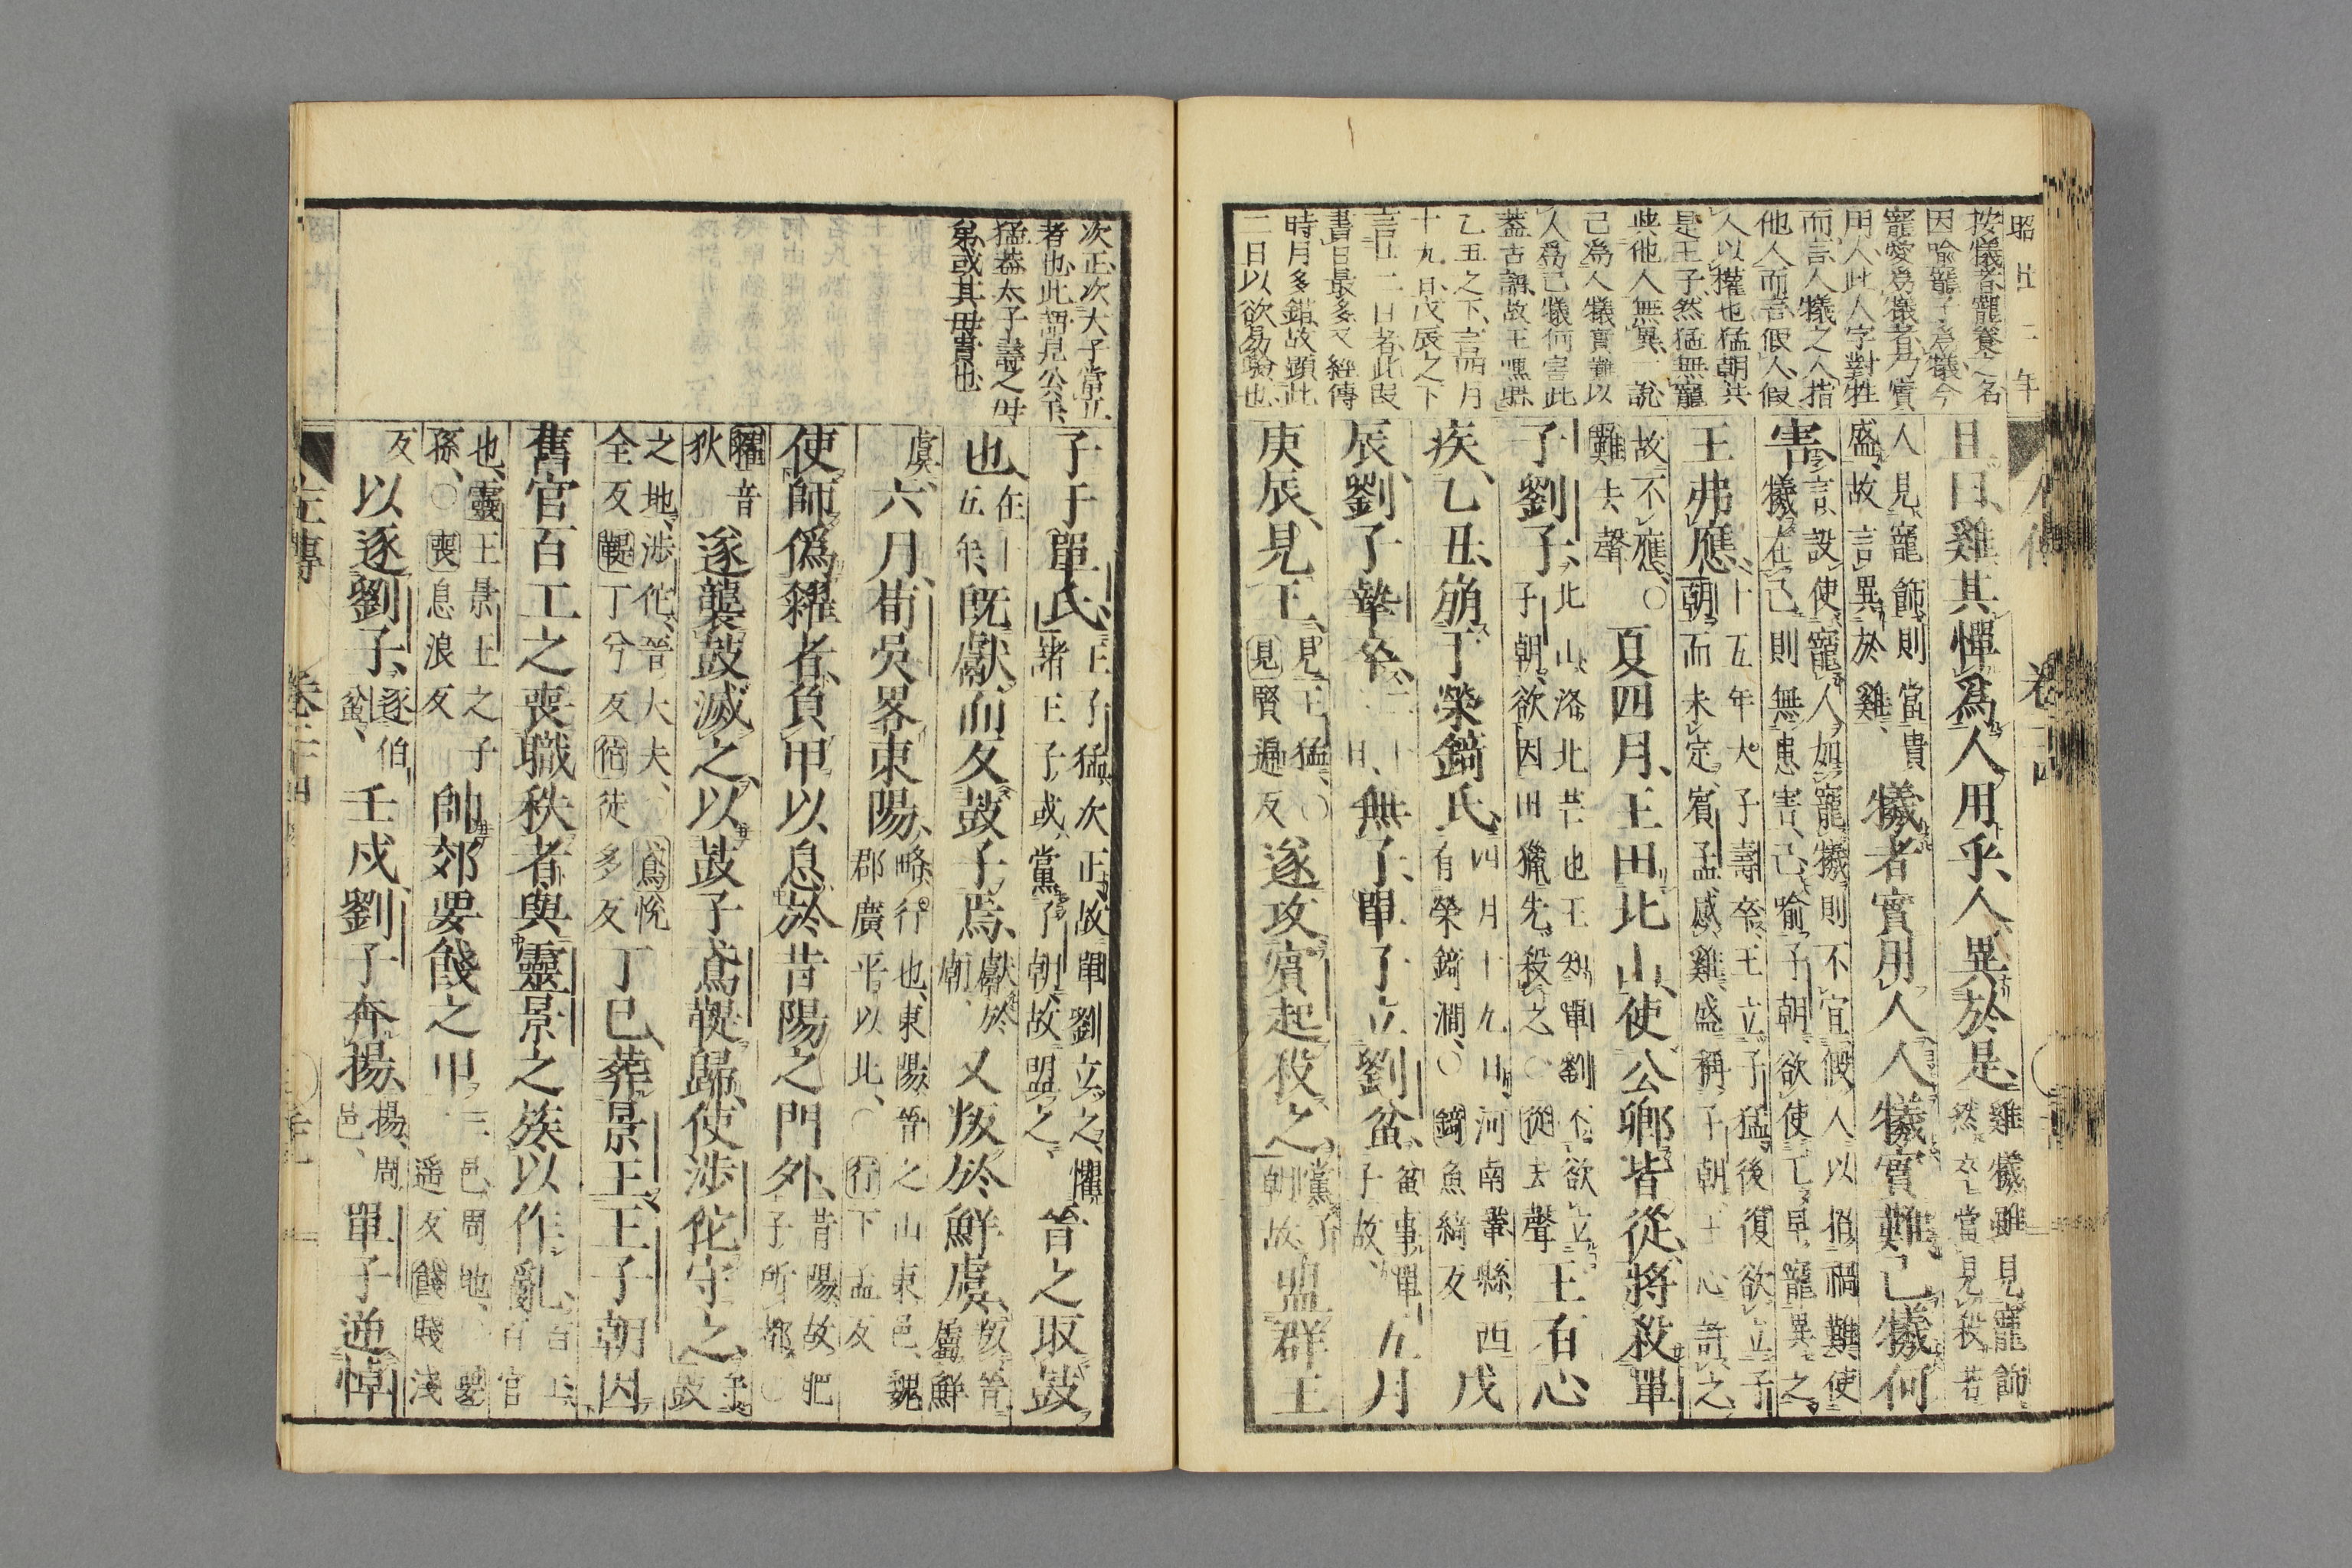 昭廿二年
按犧者寵養之名
因喩寵子爲犧今
寵愛爲犧者乃實
用人此人字對牲
而言人犧之人指
他人而言假人假
人以權也猛朝共
是王子然猛無寵
與他人無異一說
己爲人犧實難以
人爲己犧何害此
蓋古語故王嘿然
乙丑之下言四月
十九日戊辰之下
言廿二日者此叚
書日最多又經傳
時月多錯故顯此
二日以欲易驗也
且曰雞其憚爲人用乎人異於是雞犧雖見寵飾然卒當見殺若
人見寵飾則當貴盛故言異於雞犧者實用人人犧實難己犧何
害言設使寵人如寵犧則不宜假人以招禍難使犧在己則無患害己喻子朝欲使王早寵異之
王弗應十五年大子壽卒王立子猛後復欲立子朝而未定賓孟感雞盛稱子朝王心許之
故不應○難去聲夏四月王田北山使公卿皆從將殺單
子劉子北山洛北芒也王知單劉不欲立子朝欲因田獵先殺之○從去聲王有心
疾乙丑崩于榮錡氏四月十九日河南鞏縣西有榮錡澗○錡魚綺反戊
辰劉子摯卒二十二日無子單子立劉蚠蚠事單子故五月
庚辰見王見王猛○見賢遍反遂攻賓起殺之黨子朝故盟群王
次正次大子當立
者也此謂見公下
猛蓋太子壽之母
弟或其母貴也
子于單氏王子猛次正故單劉立之懼諸王子或黨子朝故盟之晉之取鼓
也在十五年既獻而反鼓子焉獻於廟又叛於鮮虞叛晉屬鮮
虞六月荀吳畧東陽略行也東陽晉之山東邑魏郡廣平以北○行下孟反
使師僞糴者負甲以息於昔陽之門外昔陽故肥子所都○
糴音狄遂襲鼓滅之以鼓子鳶鞮歸使涉佗守之守鼓
之地涉佗晉大夫○鳶悅全反鞮丁兮反佗徒多反丁巳葬景王王子朝因
舊官百工之喪職秩者與靈景之族以作亂百工百官
也靈王景王之子孫○喪息浪反帥郊要餞之甲三邑周地○要遥反餞賤淺
反以逐劉子逐伯蚠壬戌劉子奔揚揚周邑單子逆悼
左傳 卷二十四